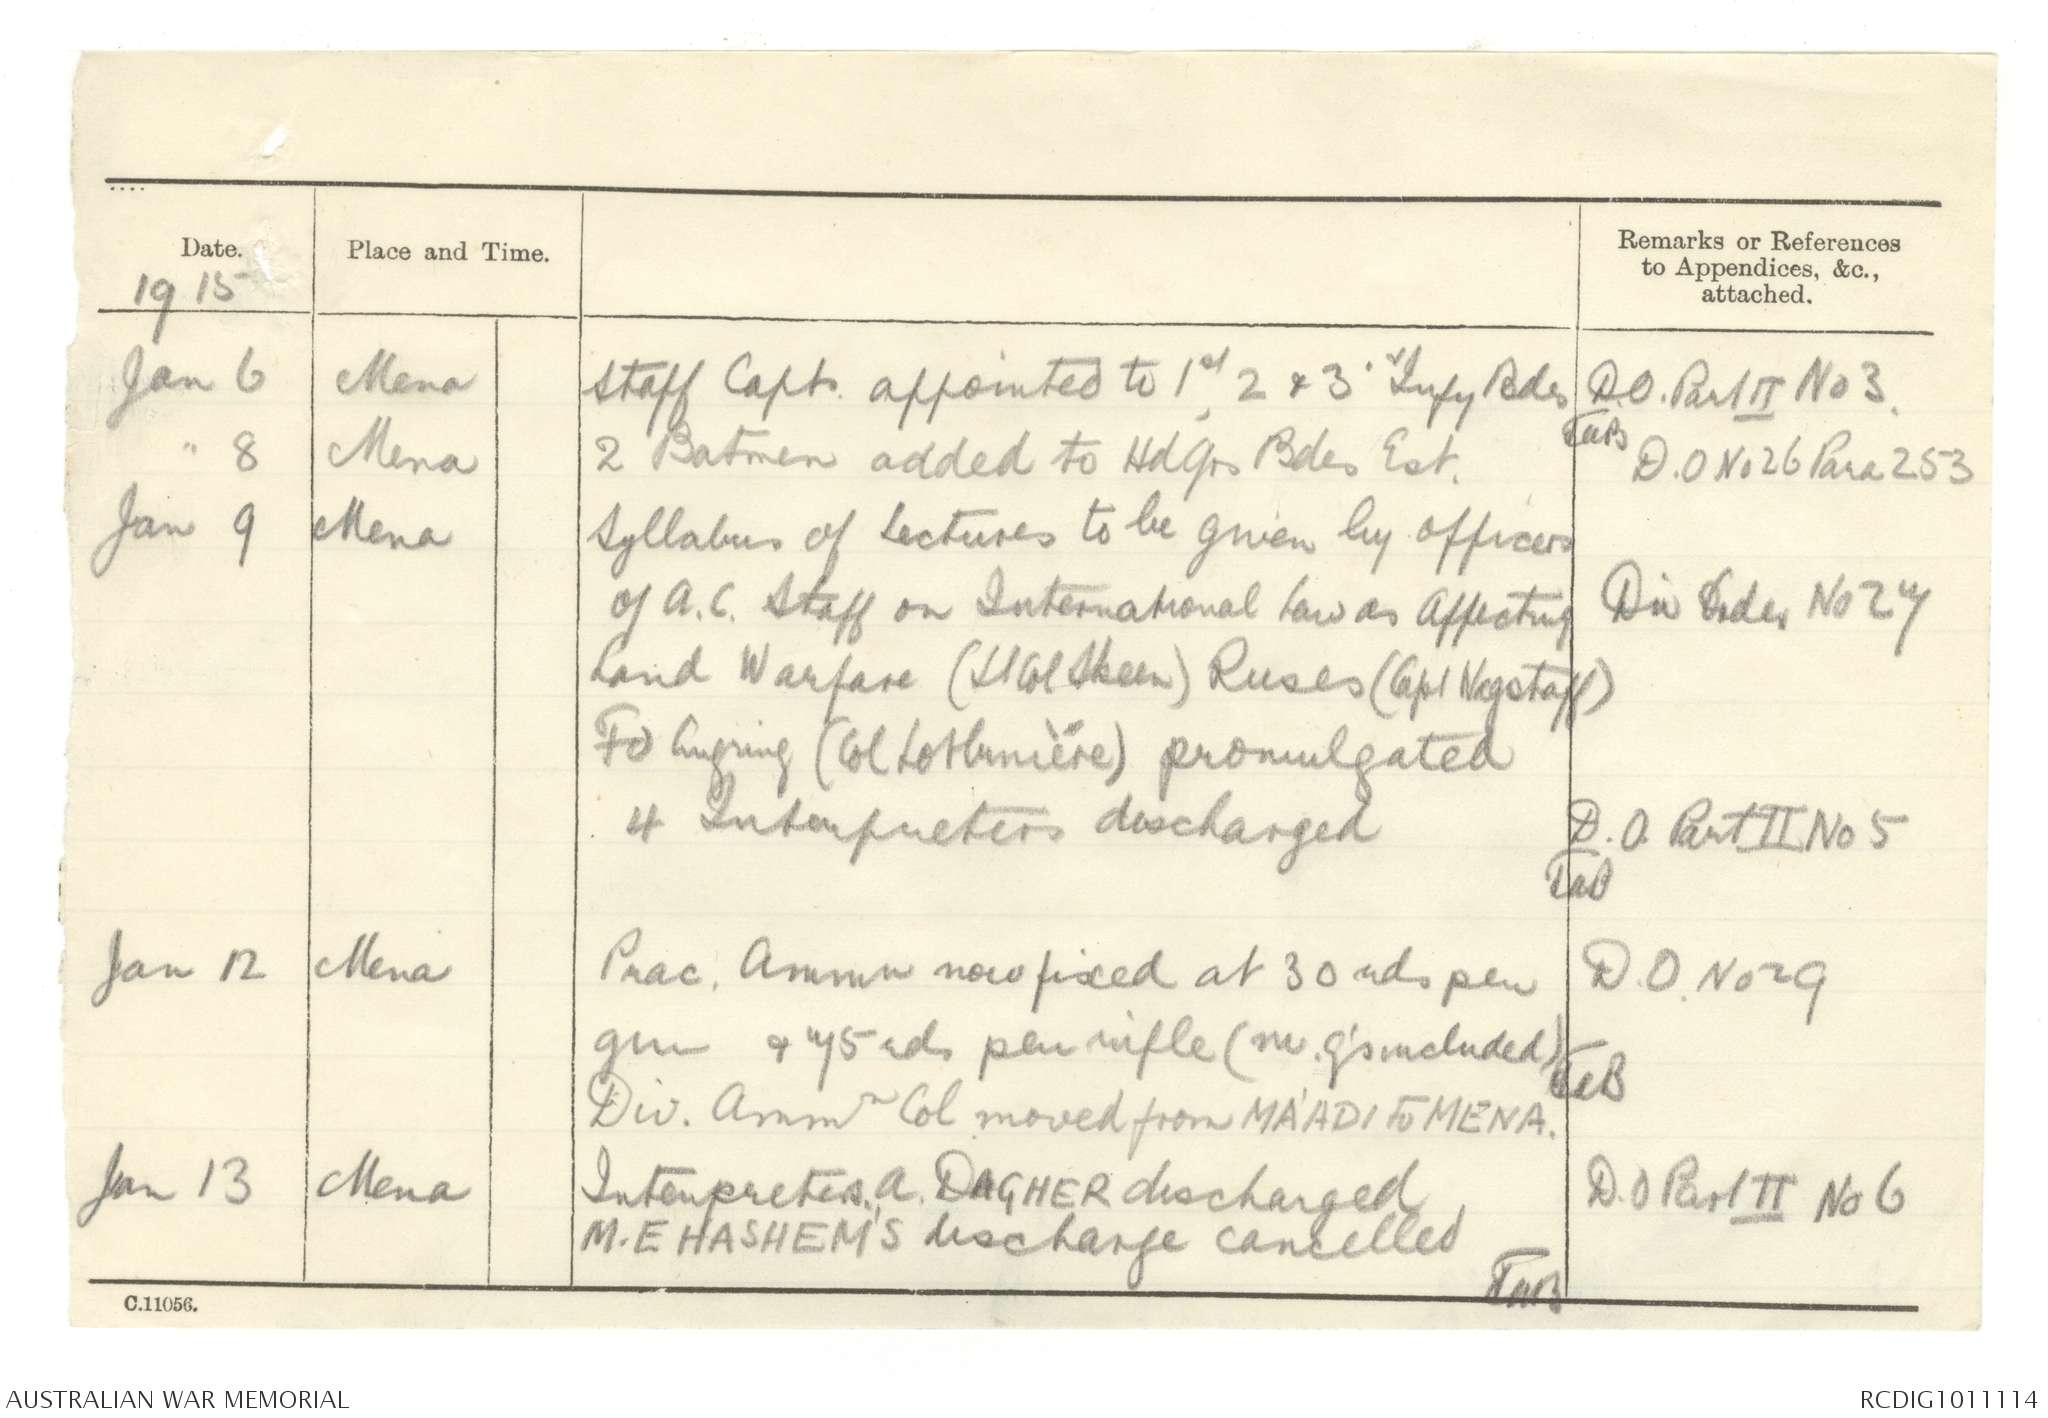 Date.
Place and Time.
Remarks or References
to Appendices, &c.,
attached.
1915
Jan 6 Mena Staff Capts. appointed to 1st, 2 & 3rd Infy Bdes D.O. Part II No 3.
" 8 Mena 2 Batmen added to Hdqrs Bdes Est. D.O No 26 Para 253
Jan 9 Mena Syllabus of Lectures to be given by officers
of A.C. Staff on International Law as Affecting Div Order No 27
Land Warfare (Lt Col Skeen) Ruses (Capt Wagstaff)
Fd Engring (Col Lotbinière) promulgated
4 Interpreters discharged D.O. Part II No 5
Jan 12 Mena Prac. Ammn now fixed at 30 rds per D.O. No 29
gun & 75 rds per rifle (m.g's included)
Div. Ammn Col moved from MA'ADI to MENA.
Jan 13 Mena Interpreters. A. DAGHER discharged, D.O Part II No 6
M. E HASHEM'S discharge cancelled
C.11056.
AUSTRALIAN WAR MEMORIAL
RCDIG1011114